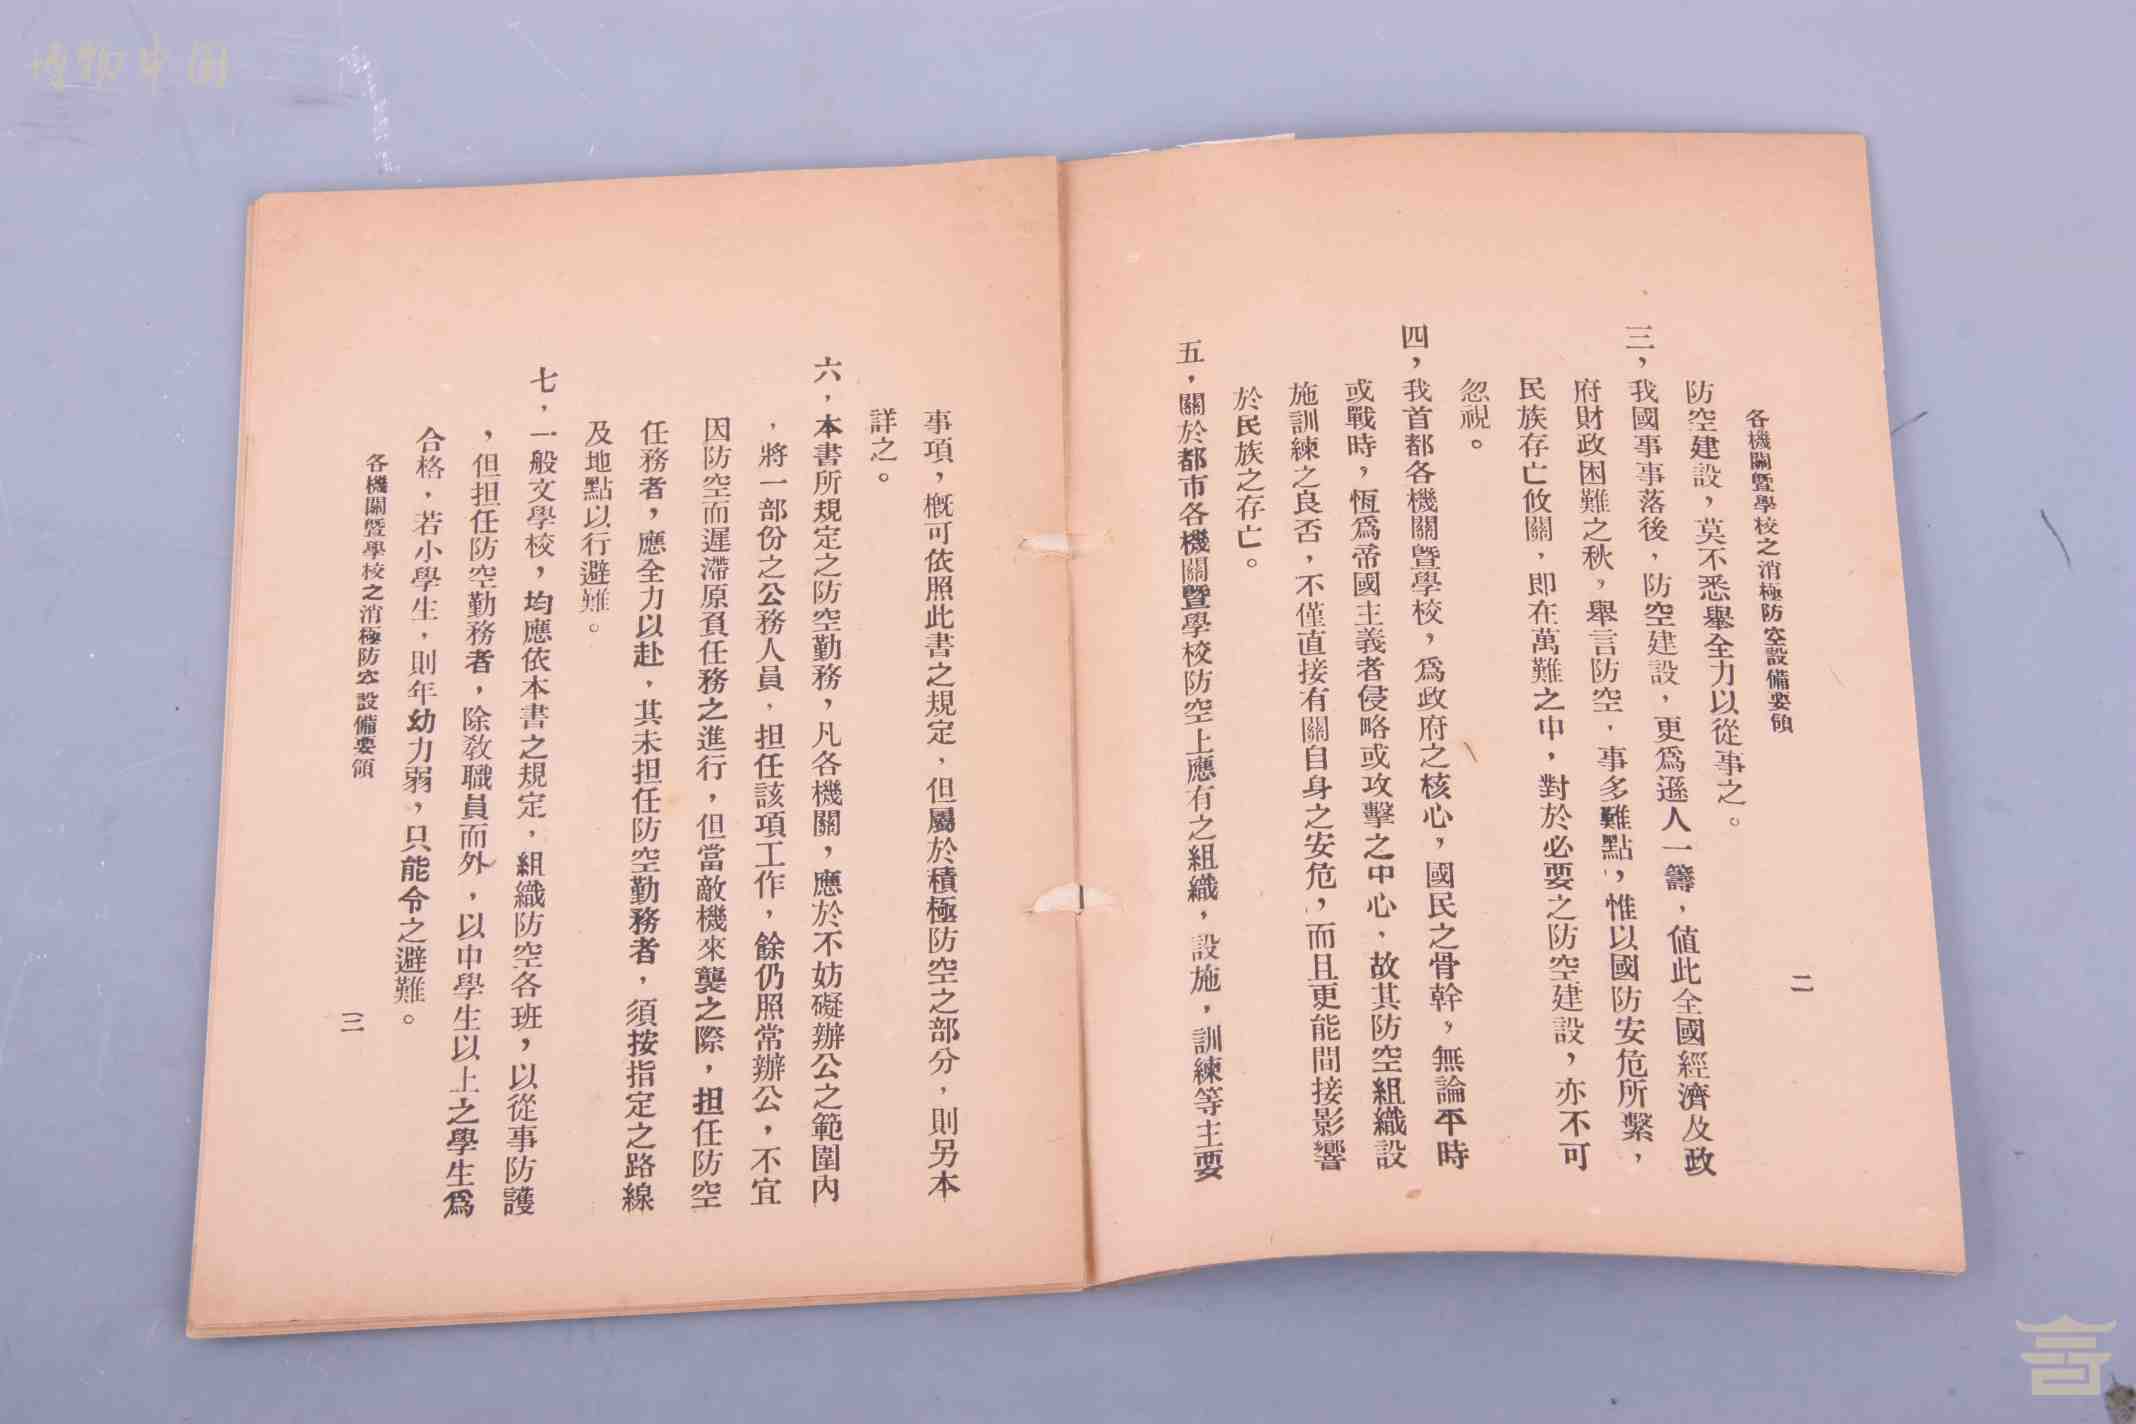 博物中国
各機關暨學校之消極防空設備要領
二
防空建設，莫不悉舉全力以從事之。
三，我國事事落後，防空建設，更爲遜人一籌，值此全國經濟及政
府財政困難之秋，舉言防空，事多難點，惟以國防安危所繫，
民族存亡攸關，即在萬難之中，對於必要之防空建設，亦不可
忽視。
四，我首都各機關暨學校，爲政府之核心，國民之骨幹，無論平時
或戰時，恆爲帝國主義者侵略或攻擊之中心，故其防空組織設
施訓練之良否，不僅直接有關自身之安危，而且更能間接影響
於民族之存亡。
五，關於都市各機關暨學校防空上應有之組織，設施，訓練等主要
事項，槪可依照此書之規定，但屬於積極防空之部分，則另本
詳之。
六，本書所規定之防空勤務，凡各機關，應於不妨礙辦公之範圍內
，將一部份之公務人員，担任該項工作，餘仍照常辦公，不宜
因防空而遲滯原負任務之進行，但當敵機來襲之際，担任防空
任務者，應全力以赴，其未担任防空勤務者，須按指定之路線
及地點以行避難。
七，一般文學校，均應依本書之規定，組織防空各班，以從事防護
，但担任防空勤務者，除敎職員而外，以中學生以上之學生爲
合格，若小學生，則年幼力弱，只能令之避難。
各機關暨學校之消極防空設備要領
三